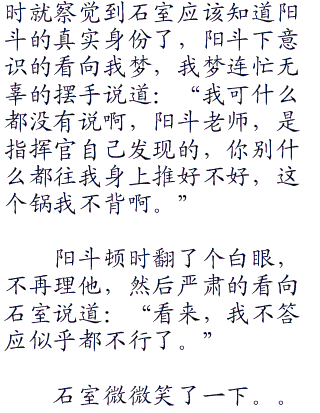 时就察觉到石室应该知道阳
斗的真实身份了，阳斗下意
识的看向我梦，我梦连忙无
辜的摆手说道：“我可什么
都没有说啊，阳斗老师，是
指挥官自己发现的，你别什
么都往我身上推好不好，这
个锅我不背啊。”
阳斗顿时翻了个白眼，
不再理他，然后严肃的看向
石室说道：“看来，我不答
应似乎都不行了。”
石室微微笑了一下。。